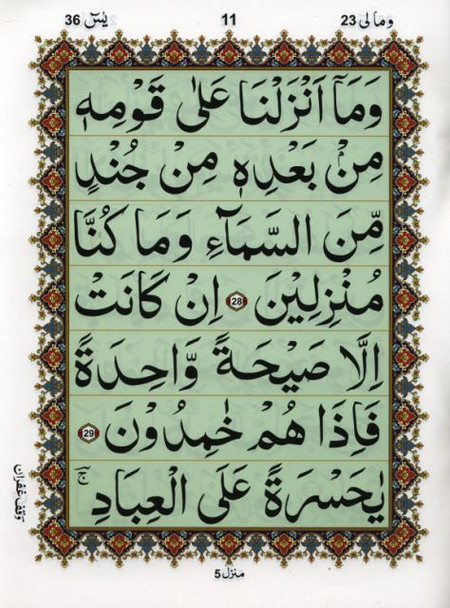 ومالی 23
11
یٰسٓ 36
وَمَاۤ اَنْزَلْنَا عَلٰى قَوْمِهٖ
مِنْۢ بَعْدِهٖ مِنْ جُنْدٍ
مِّنَ السَّمَآءِ وَمَا كُنَّا
مُنْزِلِيْنَ 28 اِنْ كَانَتْ
اِلَّا صَيْحَةً وَّاحِدَةً
فَاِذَا هُمْ خٰمِدُوْنَ 29
يٰحَسْرَةً عَلَى الْعِبَادِ ۚ
وقف غفران
منزل 5